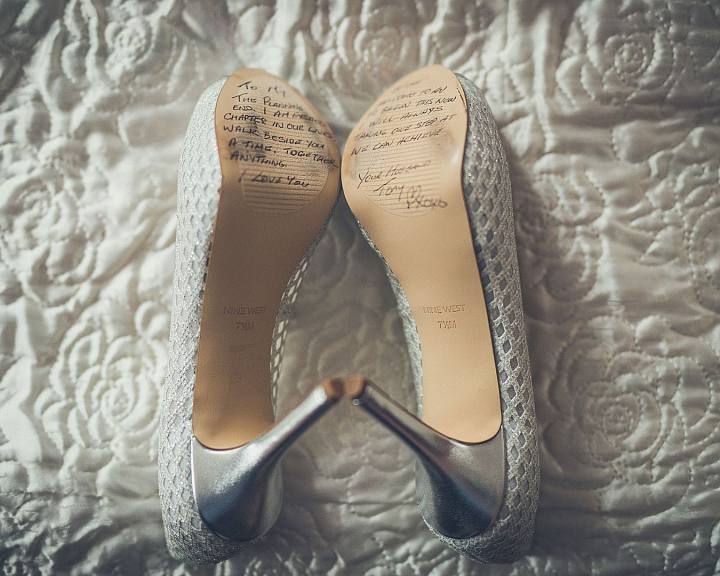 To My
THE PLANNING
END. I AM
CHAPTER IN OUR LIVES
WALK BESIDE YOU
A TIME, TOGETHER
ANYTHING.
I LOVE YOU
TO AN
BEGIN THIS NEW
WILL ALWAYS
TAKING ONE STEP AT
WE CAN ACHIEVE
YOUR HUSBAND
TOM
XOXO
NINE WEST
7½M
NINE WEST
7½M